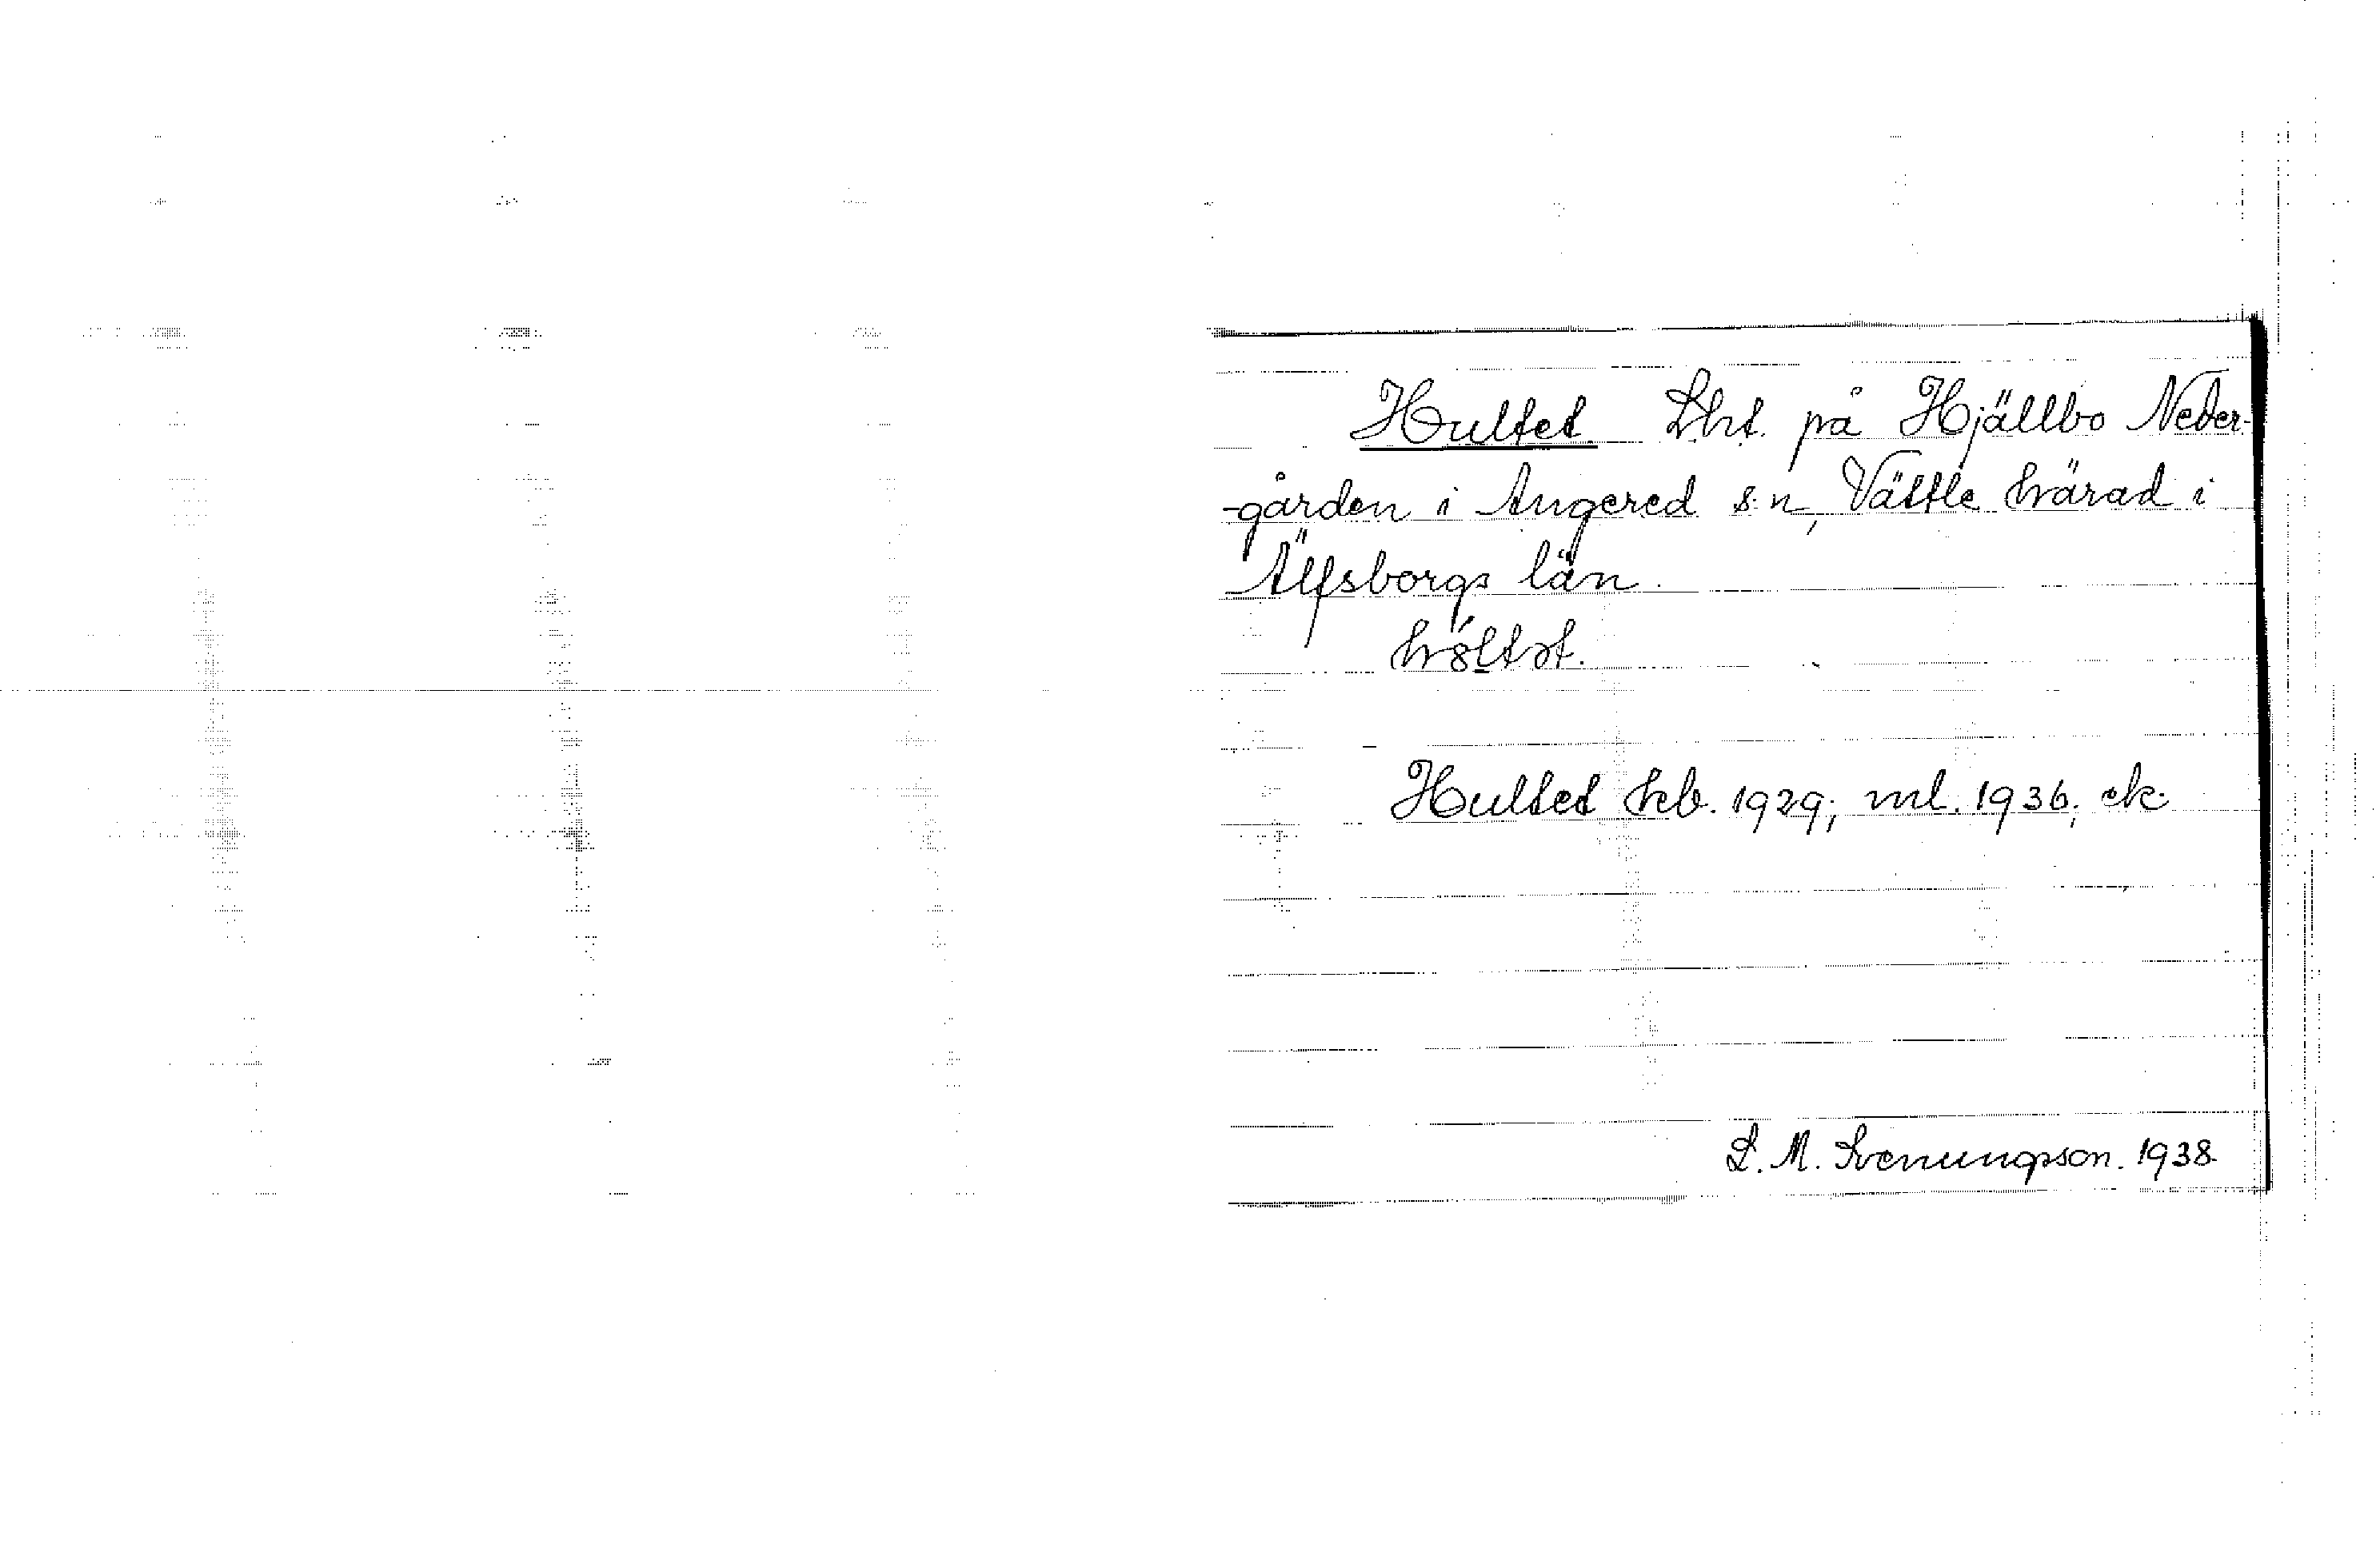 Hultet. Lht. på Hjällbo Neder-
-gården i Angered s:n, Vättle härad i
Älfsborgs län.
Hultet keb. 1929; ml. 1936; ek.
L. M. Svenungsson. 1938